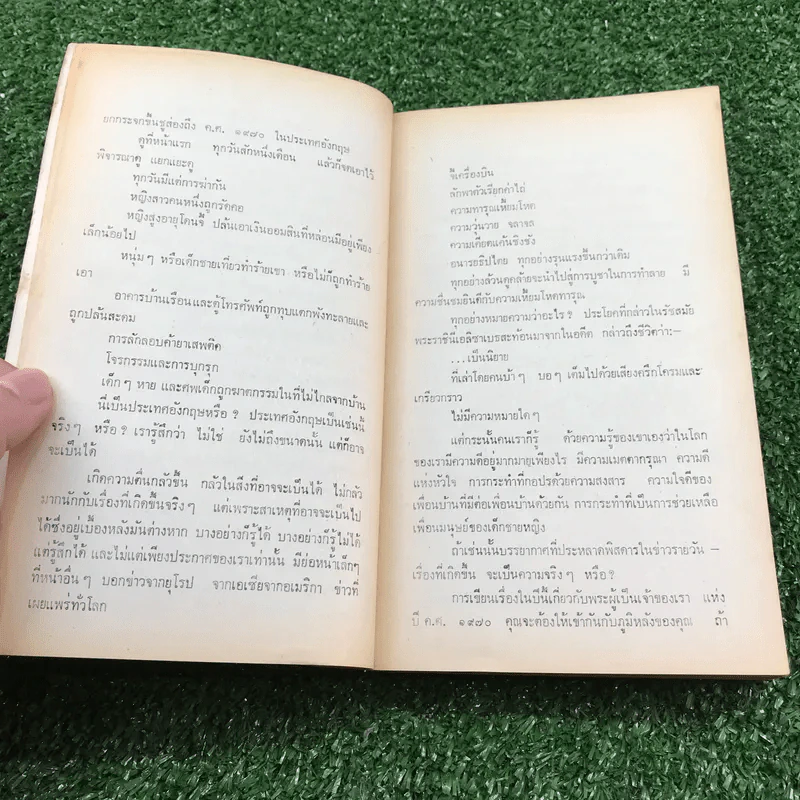 ยกกระจกขึ้นชูส่องถึง ค.ศ. ๑๙๗๐ ในประเทศอังกฤษ
ดูที่หน้าแรก ทุกวันสักหนึ่งเดือน แล้วก็จดเอาไว้
พิจารณาดู แยกแยะดู
ทุกวันมีแต่การฆ่ากัน
หญิงสาวคนหนึ่งถูกรัดคอ
หญิงสูงอายุโดนจี้ ปล้นเอาเงินออมสินที่หล่อนมีอยู่เพียง
เล็กน้อยไป
หนุ่มๆ หรือเด็กชายเที่ยวทำร้ายเขา หรือไม่ก็ถูกทำร้าย
เอา
อาคารบ้านเรือนและตู้โทรศัพท์ถูกทุบแตกพังทะลายและ
ถูกปล้นสะดม
การลักลอบค้ายาเสพติด
โจรกรรมและการบุกรุก
เด็กๆ หาย และศพเด็กถูกฆาตกรรมในที่ไม่ไกลจากบ้าน
นี่เป็นประเทศอังกฤษหรือ ? ประเทศอังกฤษเป็นเช่นนี้
จริงๆ หรือ ? เรารู้สึกว่า ไม่ใช่ ยังไม่ถึงขนาดนั้น แต่ก็อาจ
จะเป็นได้
เกิดความตื่นกลัวขึ้น กลัวในสิ่งที่อาจจะเป็นได้ ไม่กลัว
มากนักกับเรื่องที่เกิดขึ้นจริงๆ แต่เพราะสาเหตุที่อาจจะเป็นไป
ได้ซึ่งอยู่เบื้องหลังมันต่างหาก บางอย่างก็รู้ได้ บางอย่างก็รู้ไม่ได้
แต่รู้สึกได้ และไม่แต่เพียงประกาศของเราเท่านั้น มีย่อหน้าเล็กๆ
ที่หน้าอื่นๆ บอกข่าวจากยุโรป จากเอเซียจากอเมริกา ข่าวที่
เผยแพร่ทั่วโลก
จี้เครื่องบิน
ลักพาตัวเรียกค่าไถ่
ความทารุณเหี้ยมโหด
ความวุ่นวาย จลาจล
ความเคียดแค้นชิงชัง
อนารยธิปไตย ทุกอย่างรุนแรงขึ้นกว่าเดิม
ทุกอย่างล้วนดูคล้ายจะนำไปสู่การบูชาในการทำลาย มี
ความชื่นชมยินดีกับความเหี้ยมโหดทารุณ
ทุกอย่างหมายความว่าอะไร ? ประโยคที่กล่าวในรัชสมัย
พระราชินีเอลิซาเบธสะท้อนมาจากในอดีต กล่าวถึงชีวิตว่า:–
...เป็นนิยาย
ที่เล่าโดยคนบ้าๆ บอๆ เต็มไปด้วยเสียงครึกโครมและ
เกรียวกราว
ไม่มีความหมายใดๆ
แต่กระนั้นคนเราก็รู้ ด้วยความรู้ของเขาเองว่าในโลก
ของเรามีความดีอยู่มากมายเพียงไร มีความเมตตากรุณา ความดี
แห่งหัวใจ การกระทำที่กอปรด้วยความสงสาร ความใจดีของ
เพื่อนบ้านที่มีต่อเพื่อนบ้านด้วยกัน การกระทำที่เป็นการช่วยเหลือ
เพื่อนมนุษย์ของเด็กชายหญิง
ถ้าเช่นนั้นบรรยากาศที่ประหลาดพิสดารในข่าวรายวัน –
เรื่องที่เกิดขึ้น จะเป็นความจริงๆ หรือ?
การเขียนเรื่องในปีนี้เกี่ยวกับพระผู้เป็นเจ้าของเรา แห่ง
ปี ค.ศ. ๑๙๗๐ คุณจะต้องให้เข้ากันกับภูมิหลังของคุณ ถ้า